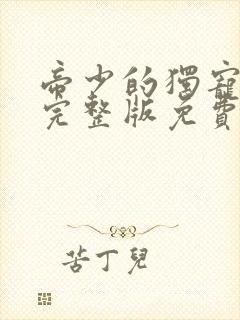 帝少的獨寵
完整版免費
苦丁兒